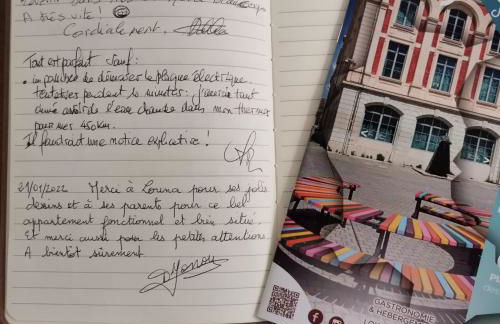 A très vite !
Cordialement.
Tout est parfait sauf :
de démarrer la plaque électrique.
tentatives pendant 10 minutes : j'aurais tant
aimé avoir de l'eau chaude dans mon thermos
pour mes 450km.
Il faudrait une notice explicative !
21/01/2022 Merci à Louna pour ses jolis
dessins et à ses parents pour ce bel
appartement fonctionnel et bien situé.
Et merci aussi pour les petites attentions.
A bientôt sûrement
GASTRONOMIE
& HÉBERGE